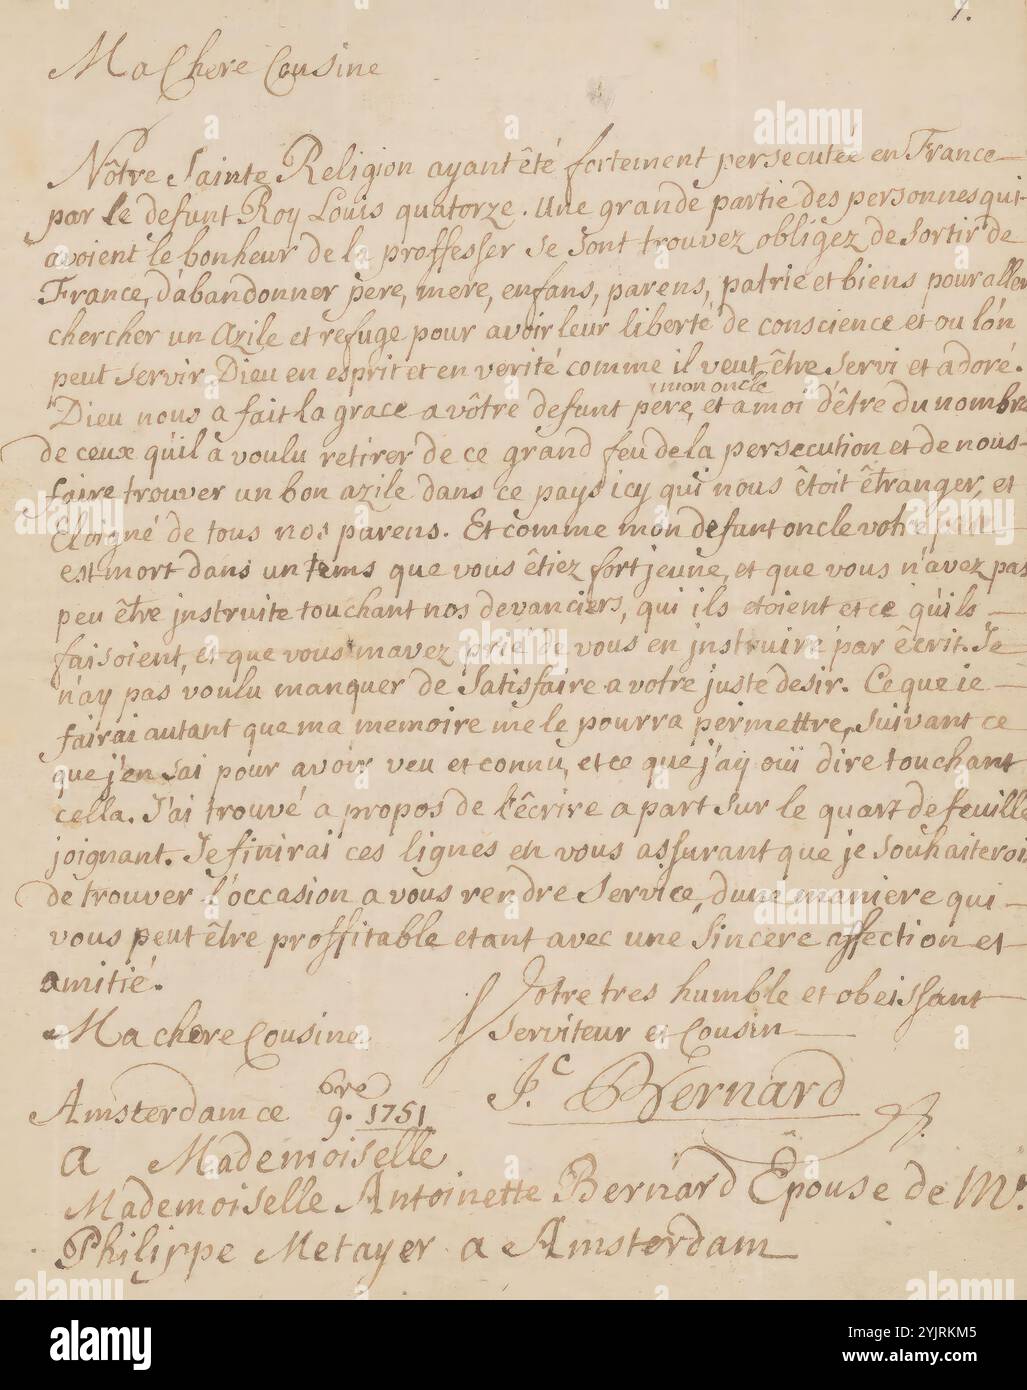 1.
Ma Chere Cousine
Nôtre Sainte Religion ayant êté fortement persecutée en France
par le defunt Roy Louis quatorze. Une grande partie des personnes qui
avoient le bonheur de la proffesser se sont trouvez obligez de sortir de
France, d'abandonner pere, mere, enfans, parens, patrie et biens pour aller
chercher un azile et refuge pour avoir leur liberté de conscience et ou l'on
peut servir Dieu en esprit et en verité comme il veut être servi et adoré.
mon oncle
Dieu nous a fait la grace a vôtre defunt pere, et a moi d'être du nombre
de ceux qu'il à voulu retirer de ce grand feu de la persecution et de nous
faire trouver un bon azile dans ce pays icy qui nous êtoit êtranger, et
Eloigné de tous nos parens. Et comme mon defunt oncle votre pere
est mort dans un tems que vous êtiez fort jeune, et que vous n'avez pas
peu être instruite touchant nos devanciers, qui ils etoient et ce qu'ils
faisoient, et que vous m'avez prié de vous en instruire par êcrit. Je
n'ay pas voulu manquer de satisfaire a votre juste desir. Ce que ie
fairai autant que ma memoire me le pourra permettre, suivant ce
que j'en sai pour avoir veu et connu, et ce que j'ay oüi dire touchant
cella. J'ai trouvé a propos de l'êcrire a part sur le quart de feuille
joignant. Je finirai ces lignes en vous assurant que je souhaiterois
de trouver l'occasion a vous rendre service, d'une maniere qui
vous peut être proffitable etant avec une sincere affection et
amitié.
Votre tres humble et obeissant
Ma chere Cousine
serviteur et Cousin
Amsterdam ce 9. bre 1751
J.c Bernard
a Mademoiselle
Mademoiselle Antoinette Bernard Êpouse de Mr.
Philippe Metayer a Amsterdam
alamy
Image ID: 2YJRKM5
www.alamy.com